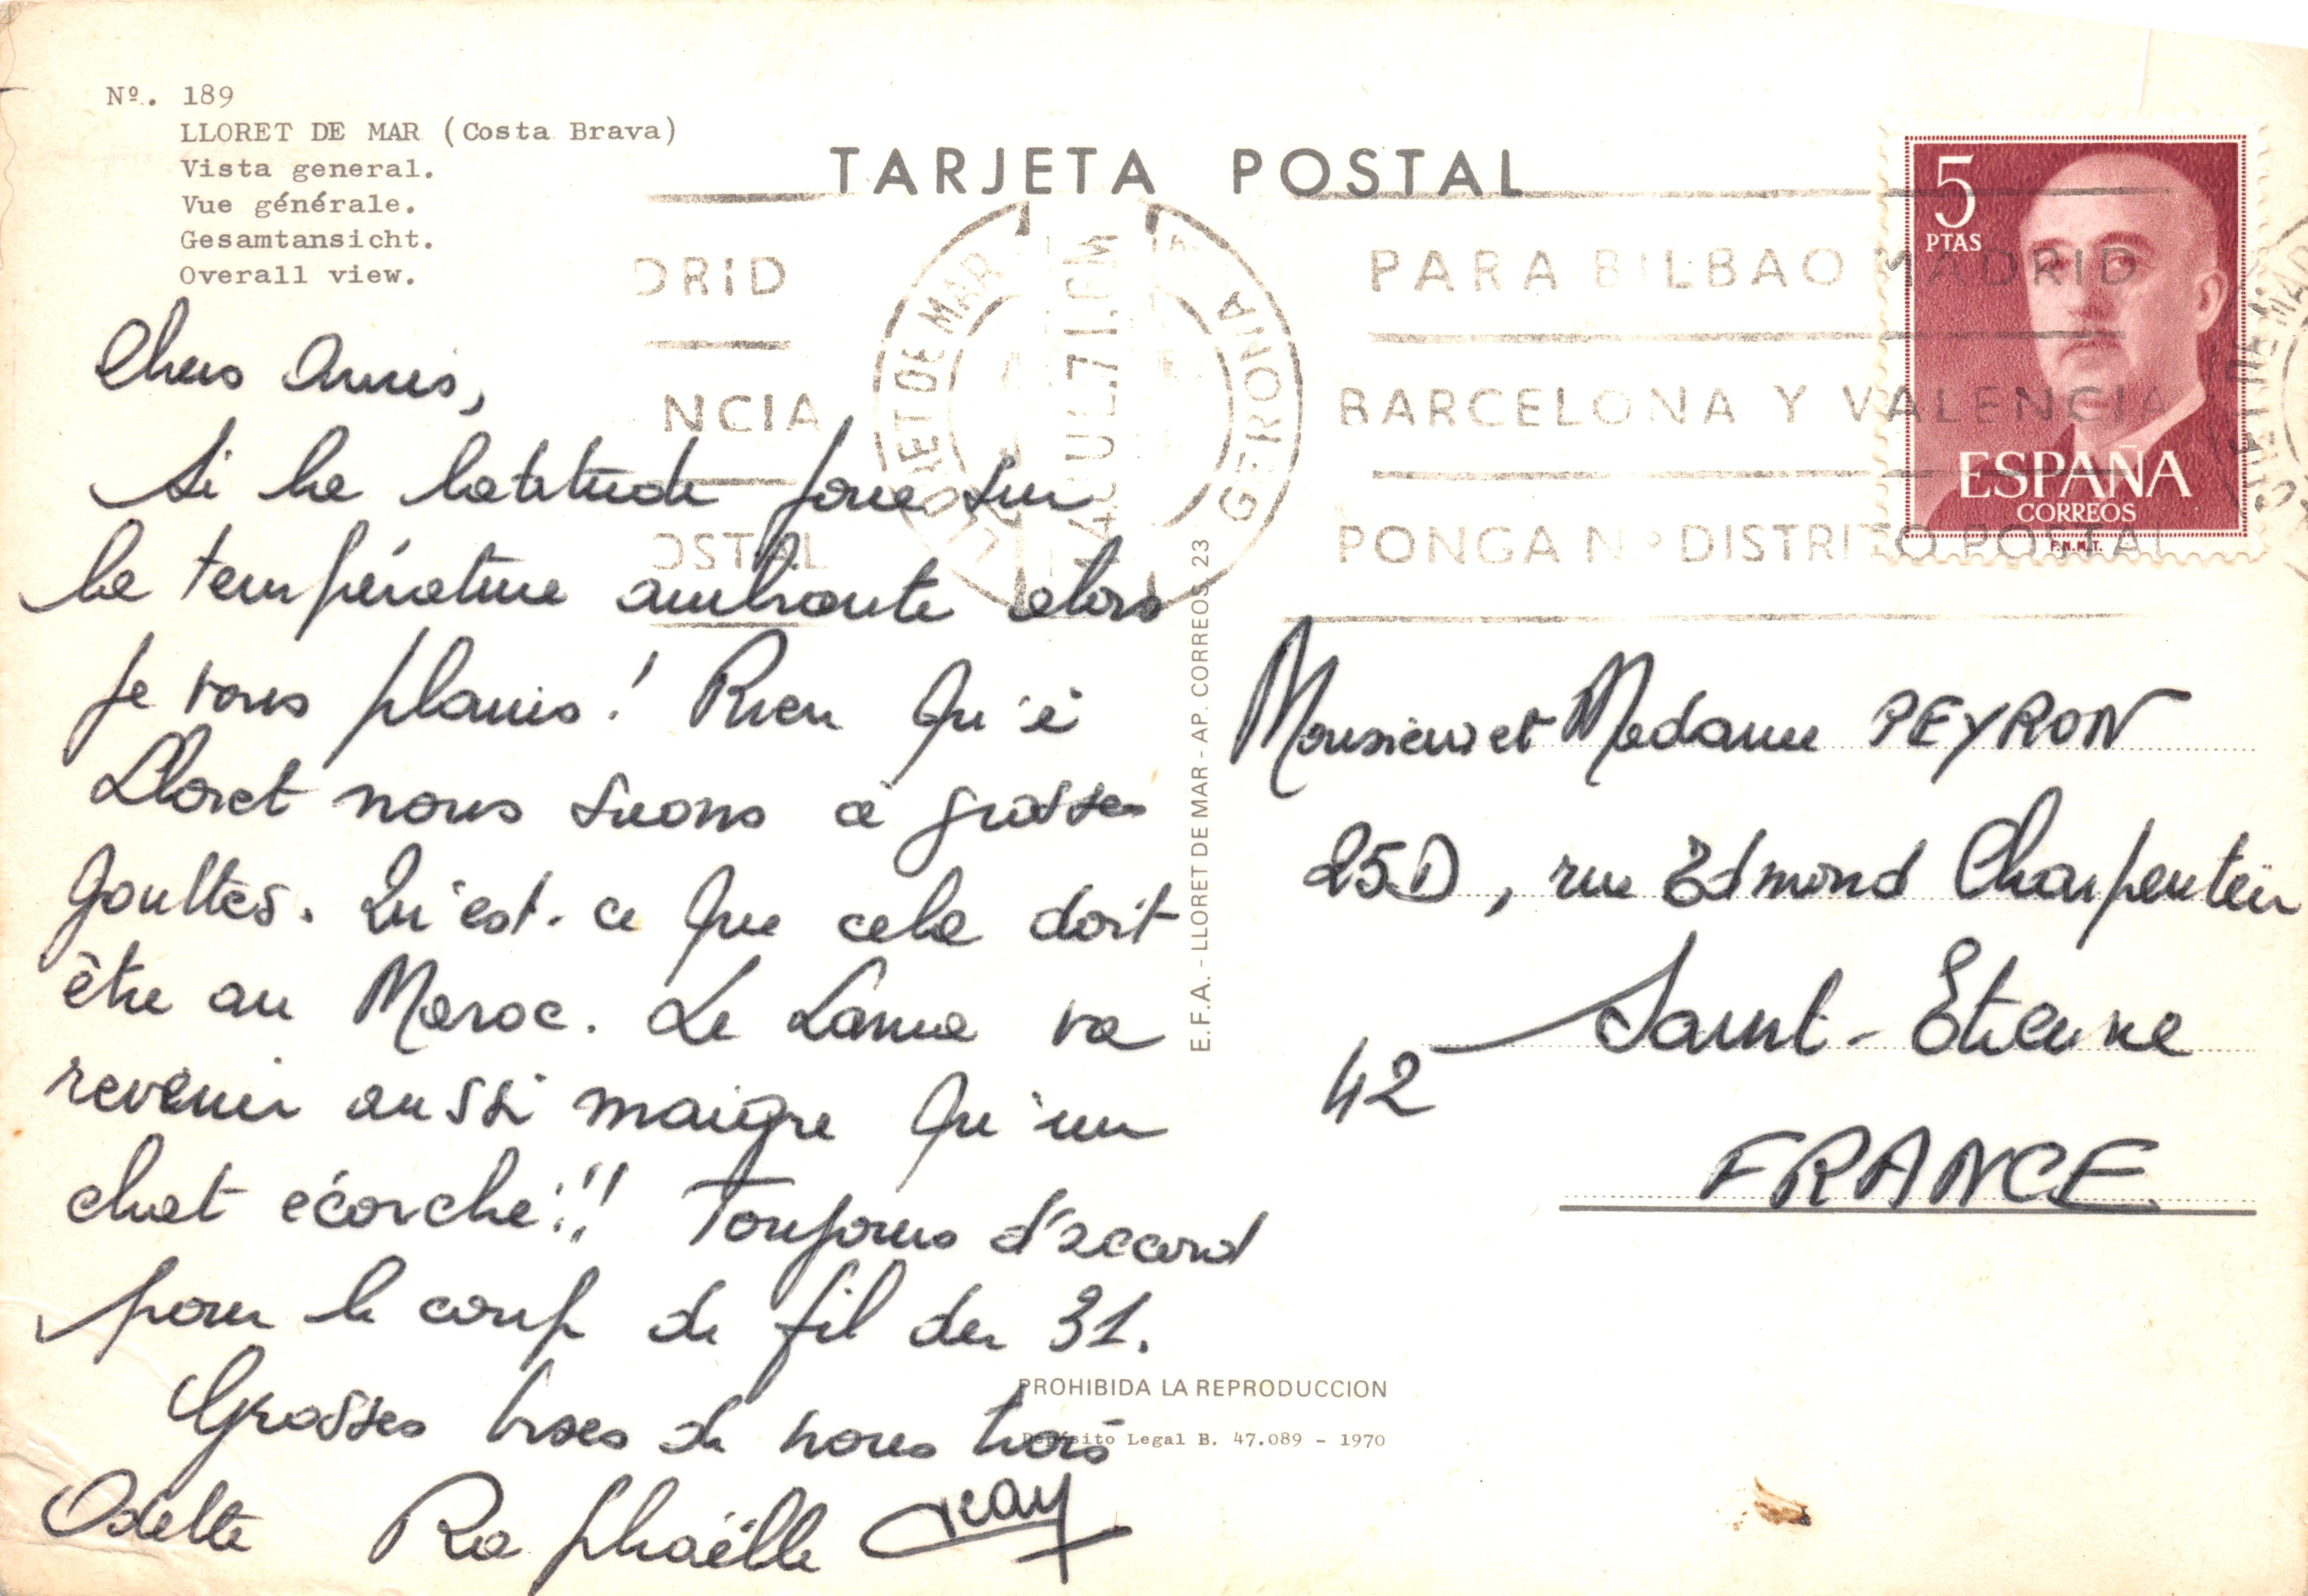 Nº. 189
LLORET DE MAR (Costa Brava)
Vista general.
Vue générale.
Gesamtansicht.
Overall view.
TARJETA POSTAL
DRID
NCIA
OSTAL
LLORET DE MAR
GERONA
JUL.71.6M
PARA BILBAO MADRID
BARCELONA Y VALENCIA
PONGA Nº DISTRITO POSTAL
5
PTAS
ESPAÑA
CORREOS
F.N.M.T.
Chers Amis,
Si la latitude joue sur
la température ambiante alors
je vous plains! Rien qu'à
Lloret nous suons à grosses
gouttes. Qu'est-ce que cela doit
être au Maroc. Le Lama va
revenir aussi maigre qu'un
chat écorché!!! Toujours d'accord
pour le coup de fil du 31.
Grosses bises de nous trois
Odette Raphaëlle Ray
E.F.A. - LLORET DE MAR - AP. CORREOS 23
Monsieur et Madame PEYRON
25D, rue Edmond Charpentier
42 Saint-Etienne
FRANCE
PROHIBIDA LA REPRODUCCION
Depósito Legal B. 47.089 - 1970